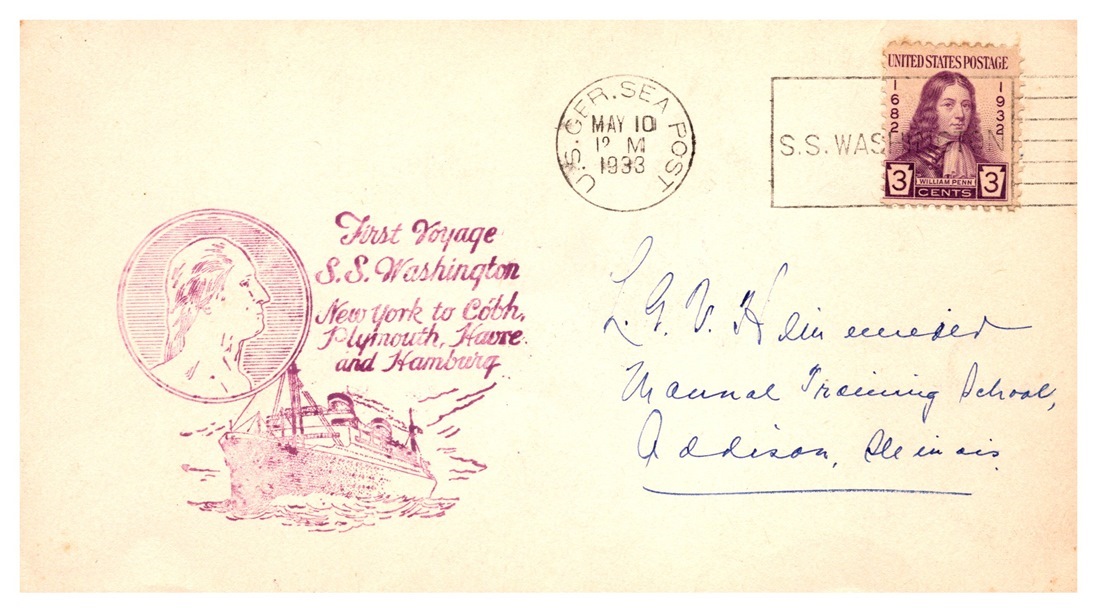 U.S. GER. SEA POST
MAY 10
12 M
1933
S.S. WASHINGTON
UNITED STATES POSTAGE
1682
1932
3
WILLIAM PENN
CENTS
3
First Voyage
S.S. Washington
New York to Cóbh,
Plymouth, Havre
and Hamburg
L. G. V.
Manual Training School,
Addison, Illinois.